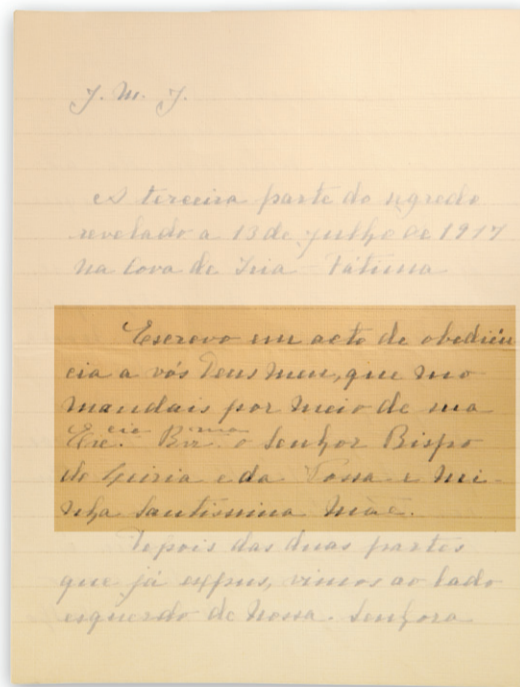 J. M. J.
A terceira parte do segredo
revelado a 13 de julho de 1917
na Cova de Iria Fátima
Escrevo em acto de obediên
cia a vós Deus meu, que mo
mandais por meio de sua
Ex.cia Rev.ma o Senhor Bispo
de Leiria e da Vossa e mi-
nha Santíssima Mãe.
Depois das duas partes
que já expus, vimos ao lado
esquerdo de Nossa Senhora